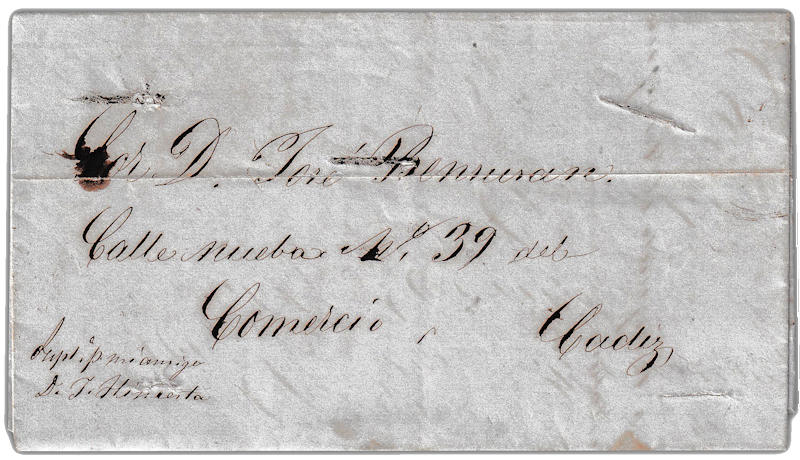 Sor D. José Benzuran.
Calle nueba No. 39 del
Comercio
Cadiz
Supl.a p. mi amigo
D. J. Himesta